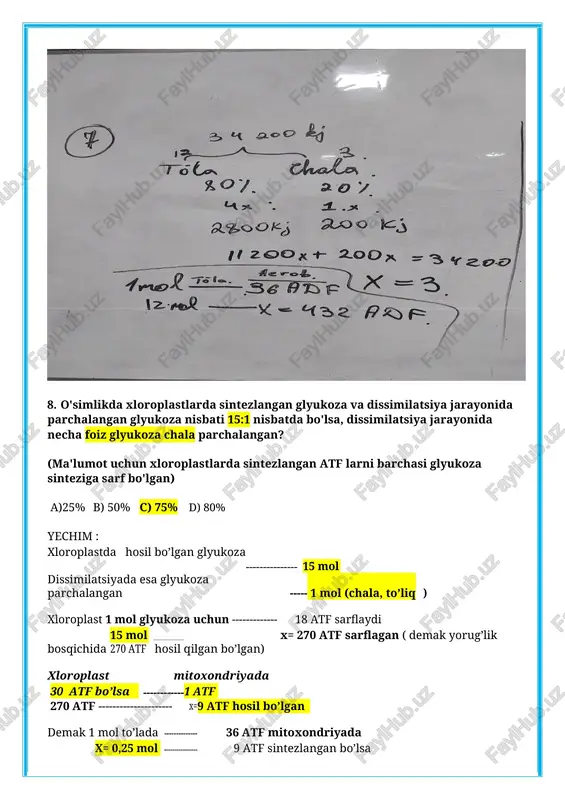 7
34 200 kj
12 3.
Tóla Chala.
80%. 20%.
4x 1.x
2800kj 200 kj
11200x + 200x = 34200
1mol Tóla. Aerob. 36 ADF X = 3.
12 mol — X = 432 ADF.
8. O'simlikda xloroplastlarda sintezlangan glyukoza va dissimilatsiya jarayonida
parchalangan glyukoza nisbati 15:1 nisbatda bo'lsa, dissimilatsiya jarayonida
necha foiz glyukoza chala parchalangan?
(Ma'lumot uchun xloroplastlarda sintezlangan ATF larni barchasi glyukoza
sinteziga sarf bo'lgan)
A)25% B) 50% C) 75% D) 80%
YECHIM :
Xloroplastda hosil bo'lgan glyukoza
--------------- 15 mol
Dissimilatsiyada esa glyukoza
parchalangan ----- 1 mol (chala, to'liq )
Xloroplast 1 mol glyukoza uchun ------------- 18 ATF sarflaydi
15 mol ________ x= 270 ATF sarflagan ( demak yorug'lik
bosqichida 270 ATF hosil qilgan bo'lgan)
Xloroplast mitoxondriyada
30 ATF bo'lsa ------------1 ATF
270 ATF --------------------- x=9 ATF hosil bo'lgan
Demak 1 mol to'lada ---------- 36 ATF mitoxondriyada
X= 0,25 mol ---------- 9 ATF sintezlangan bo'lsa
FaylHub.uz